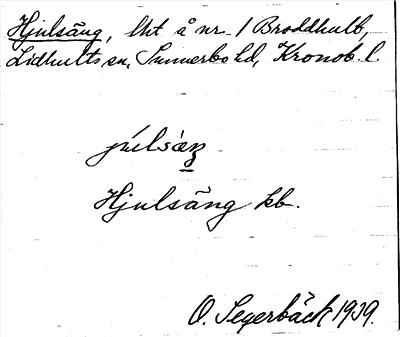 Hjulsäng, lht å nr 1 Broddhult,
Lidhults sn, Sunnerbo hd, Kronob. l.
Hjulsäng kb.
O. Segerbäck 1939.